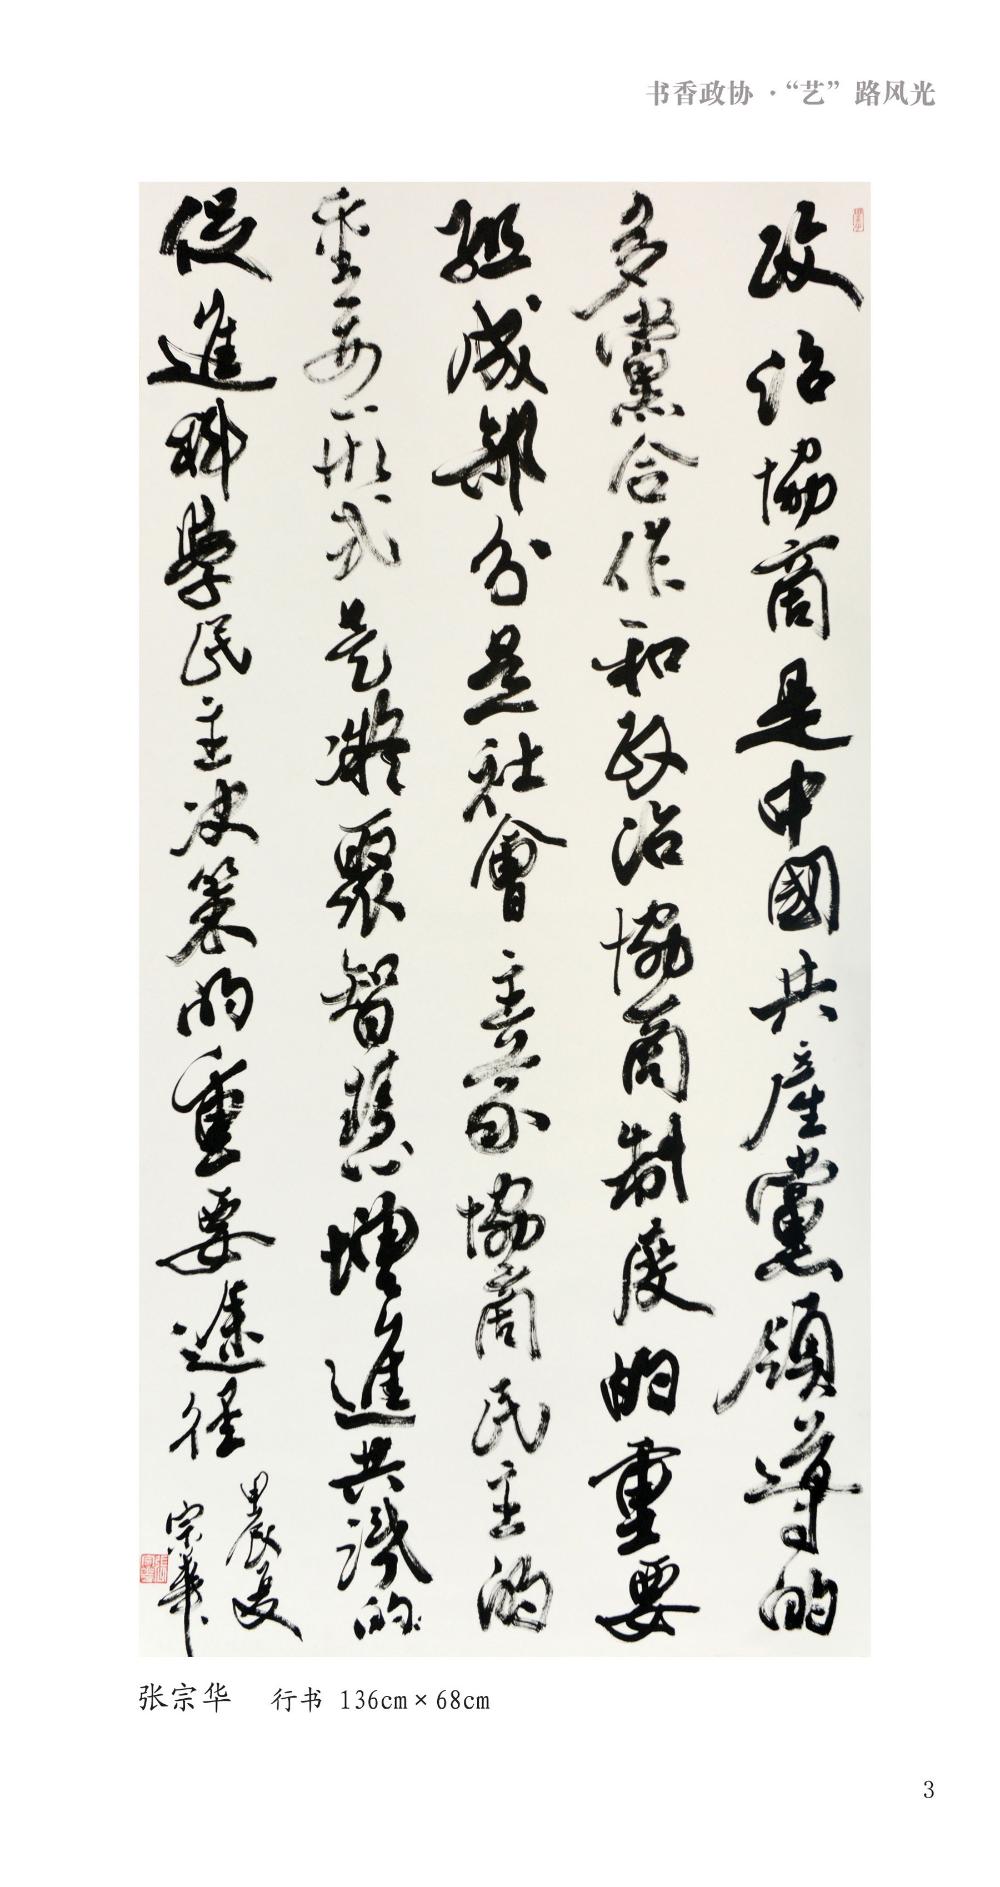 书香政协·“艺”路风光
政治協商是中國共産黨領導的
多黨合作和政治協商制度的重要
組成部分是社會主义協商民主的
重要形式是凝聚智慧增進共識的
促進科學民主决策的重要途徑
甲辰夏
宗華
张宗华 行书 136cm×68cm
3